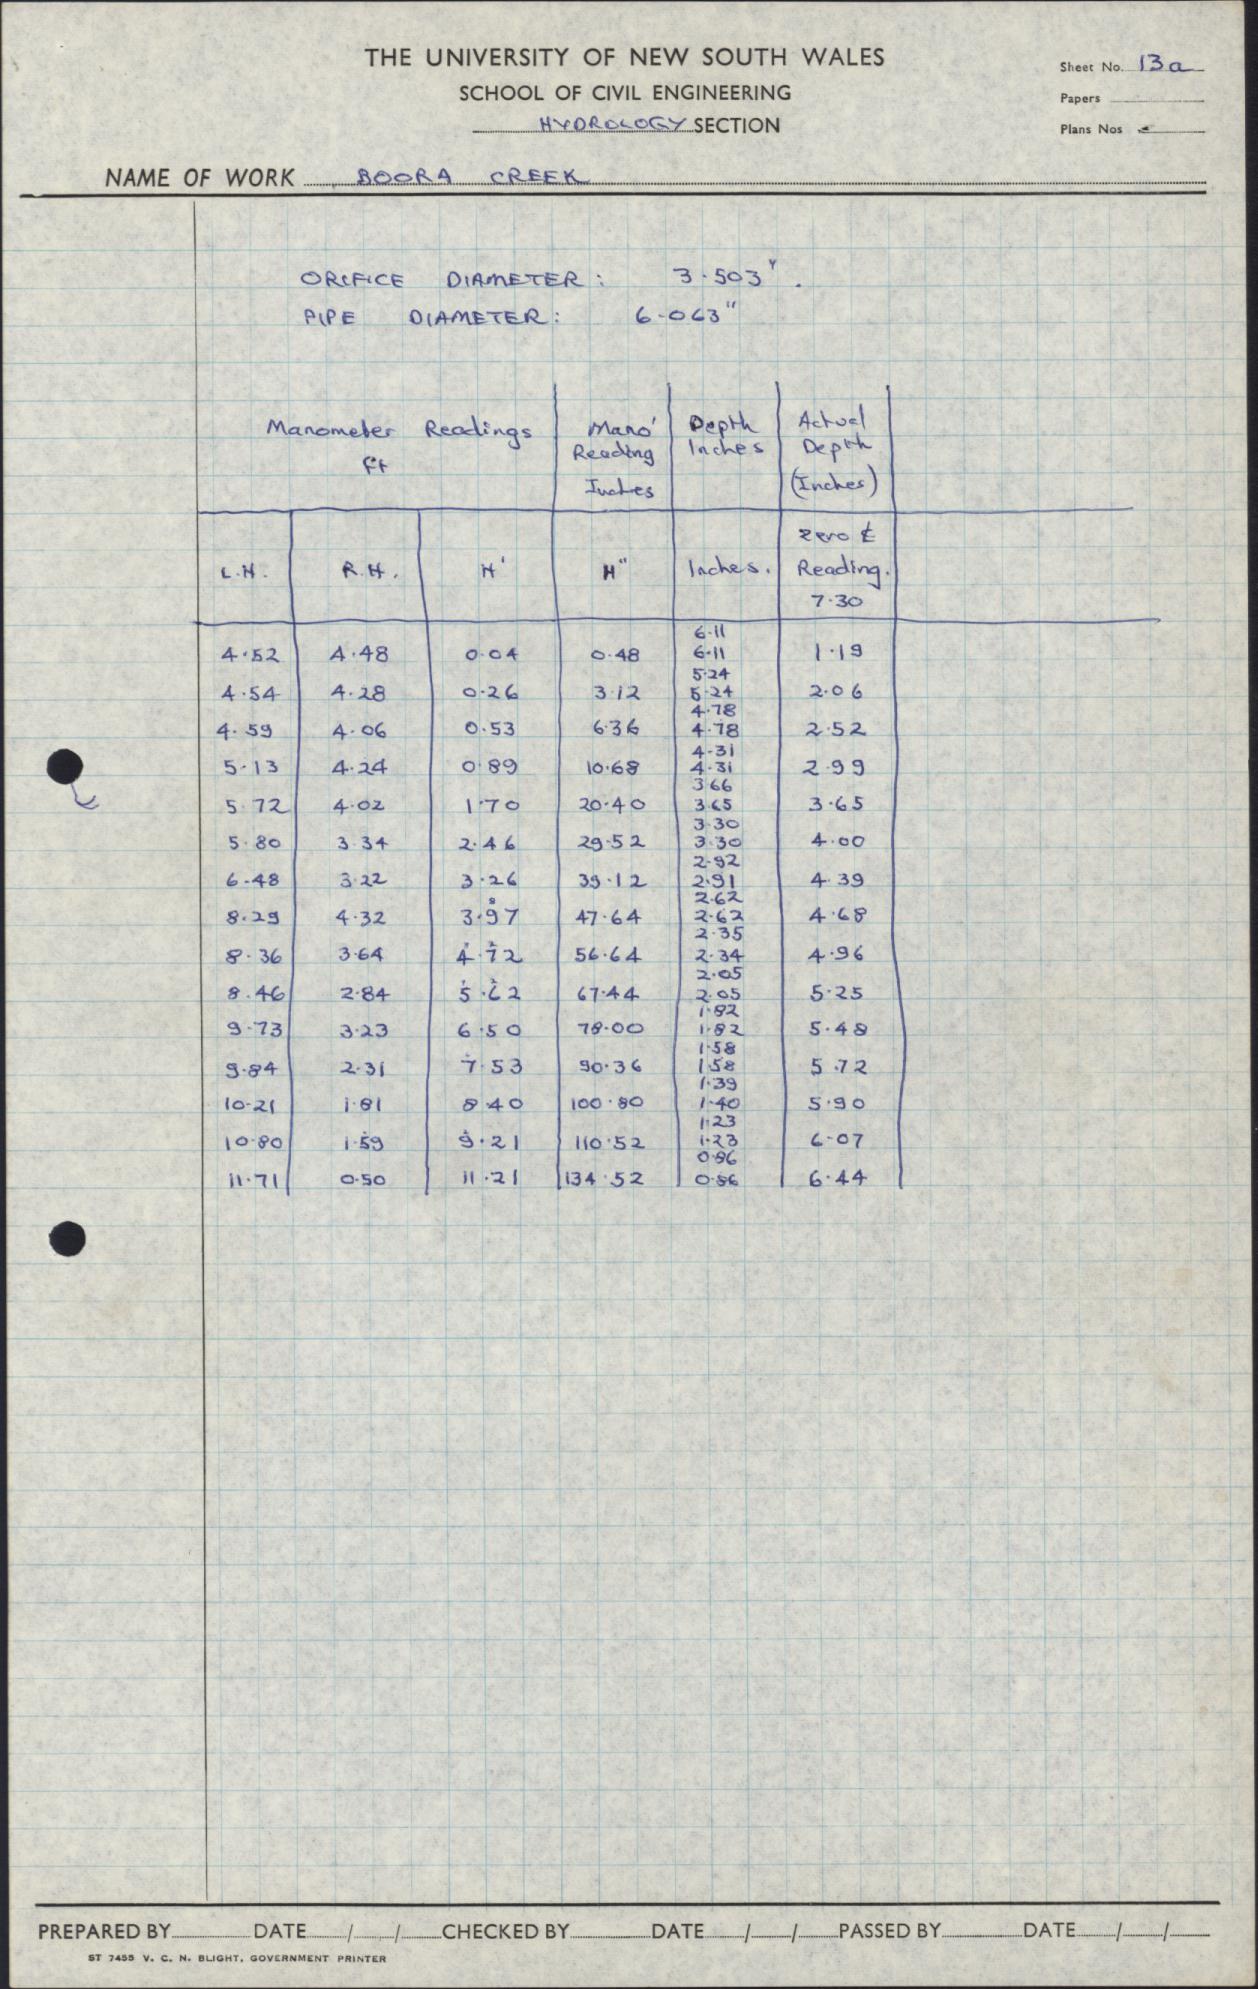 THE UNIVERSITY OF NEW SOUTH WALES
SCHOOL OF CIVIL ENGINEERING
HYDROLOGY SECTION
Sheet No. 13a
Papers
Plans Nos
NAME OF WORK BOORA CREEK
ORIFICE DIAMETER: 3.503".
PIPE DIAMETER: 6.063"
Manometer Readings ft | Mano' Reading Inches | Depth Inches | Actual Depth (Inches)
L.H. | R.H. | H' | H" | Inches. | zero ℄ Reading. 7.30
6.11
4.52 4.48 0.04 0.48 6.11 1.19
5.24
4.54 4.28 0.26 3.12 5.24 2.06
4.78
4.59 4.06 0.53 6.36 4.78 2.52
4.31
5.13 4.24 0.89 10.68 4.31 2.99
3.66
5.72 4.02 1.70 20.40 3.65 3.65
3.30
5.80 3.34 2.46 29.52 3.30 4.00
2.92
6.48 3.22 3.26 39.12 2.91 4.39
2.62
8.29 4.32 3.97 47.64 2.62 4.68
2.35
8.36 3.64 4.72 56.64 2.34 4.96
2.05
8.46 2.84 5.62 67.44 2.05 5.25
1.82
9.73 3.23 6.50 78.00 1.82 5.48
1.58
9.84 2.31 7.53 90.36 1.58 5.72
1.39
10.21 1.81 8.40 100.80 1.40 5.90
1.23
10.80 1.59 9.21 110.52 1.23 6.07
0.86
11.71 0.50 11.21 134.52 0.86 6.44
PREPARED BY DATE / / CHECKED BY DATE / / PASSED BY DATE / /
ST 7455 V. C. N. BLIGHT, GOVERNMENT PRINTER